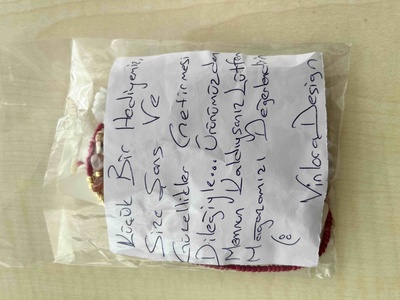 Küçük Bir Hediyemiz,
Size Şans Ve
Güzellikler Getirmesi
Dileğiyle... Ürünümüzden
Memnun Kaldıysanız Lütfen
Mağazamızı Değerlendirin
Vinlora Design